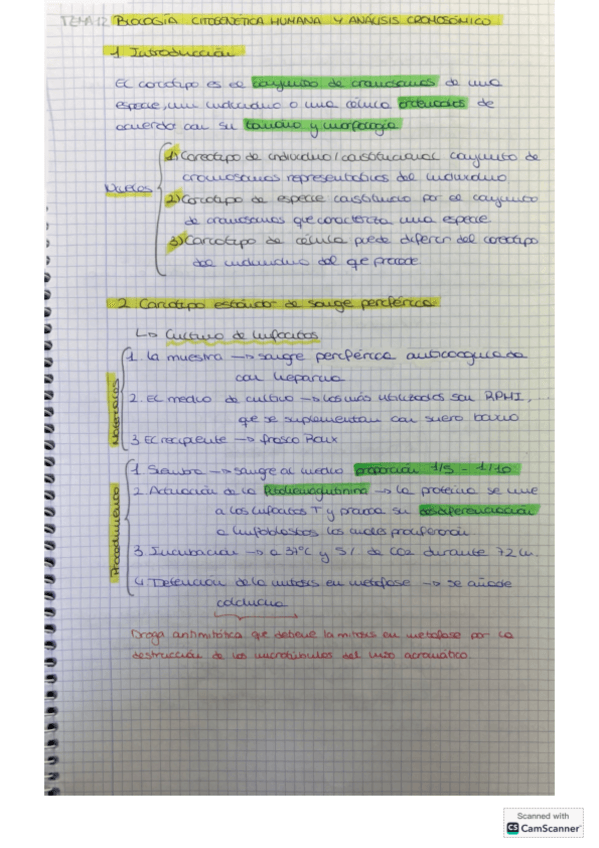 TEMA 12 BIOLOGÍA CITOGENÉTICA HUMANA Y ANÁLISIS CROMOSÓMICO
1 Introducción
El cariotipo es el conjunto de cromosomas de una
especie, un individuo o una célula ordenados de
acuerdo con su tamaño y morfología
Niveles
1) Cariotipo de individuo/constitucional conjunto de
cromosomas representativos del individuo
2) Cariotipo de especie constituido por el conjunto
de cromosomas que caracteriza una especie
3) Cariotipo de célula puede diferir del cariotipo
del individuo del que procede
2 Cariotipo estándar de sangre periférica
↳ Cultivo de linfocitos
Materiales
1. La muestra → sangre periférica anticoagulada
con heparina
2. El medio de cultivo → los más utilizados son RPMI,
que se suplementan con suero bovino
3 El recipiente → frasco Roux
Procedimiento
1 Siembra → sangre al medio proporción 1/5 - 1/10
2 Actuación de la fitohemaglutinina → la proteína se une
a los linfocitos T y provoca su desdiferenciación
a linfoblastos los cuales proliferarán
3 Incubación → a 37ºC y 5% de CO2 durante 72 h.
4 Detención de la mitosis en metafase → se añade
colchicina
Droga antimitótica que detiene la mitosis en metafase por la
destrucción de los microtúbulos del huso acromático.
Scanned with
CS CamScanner